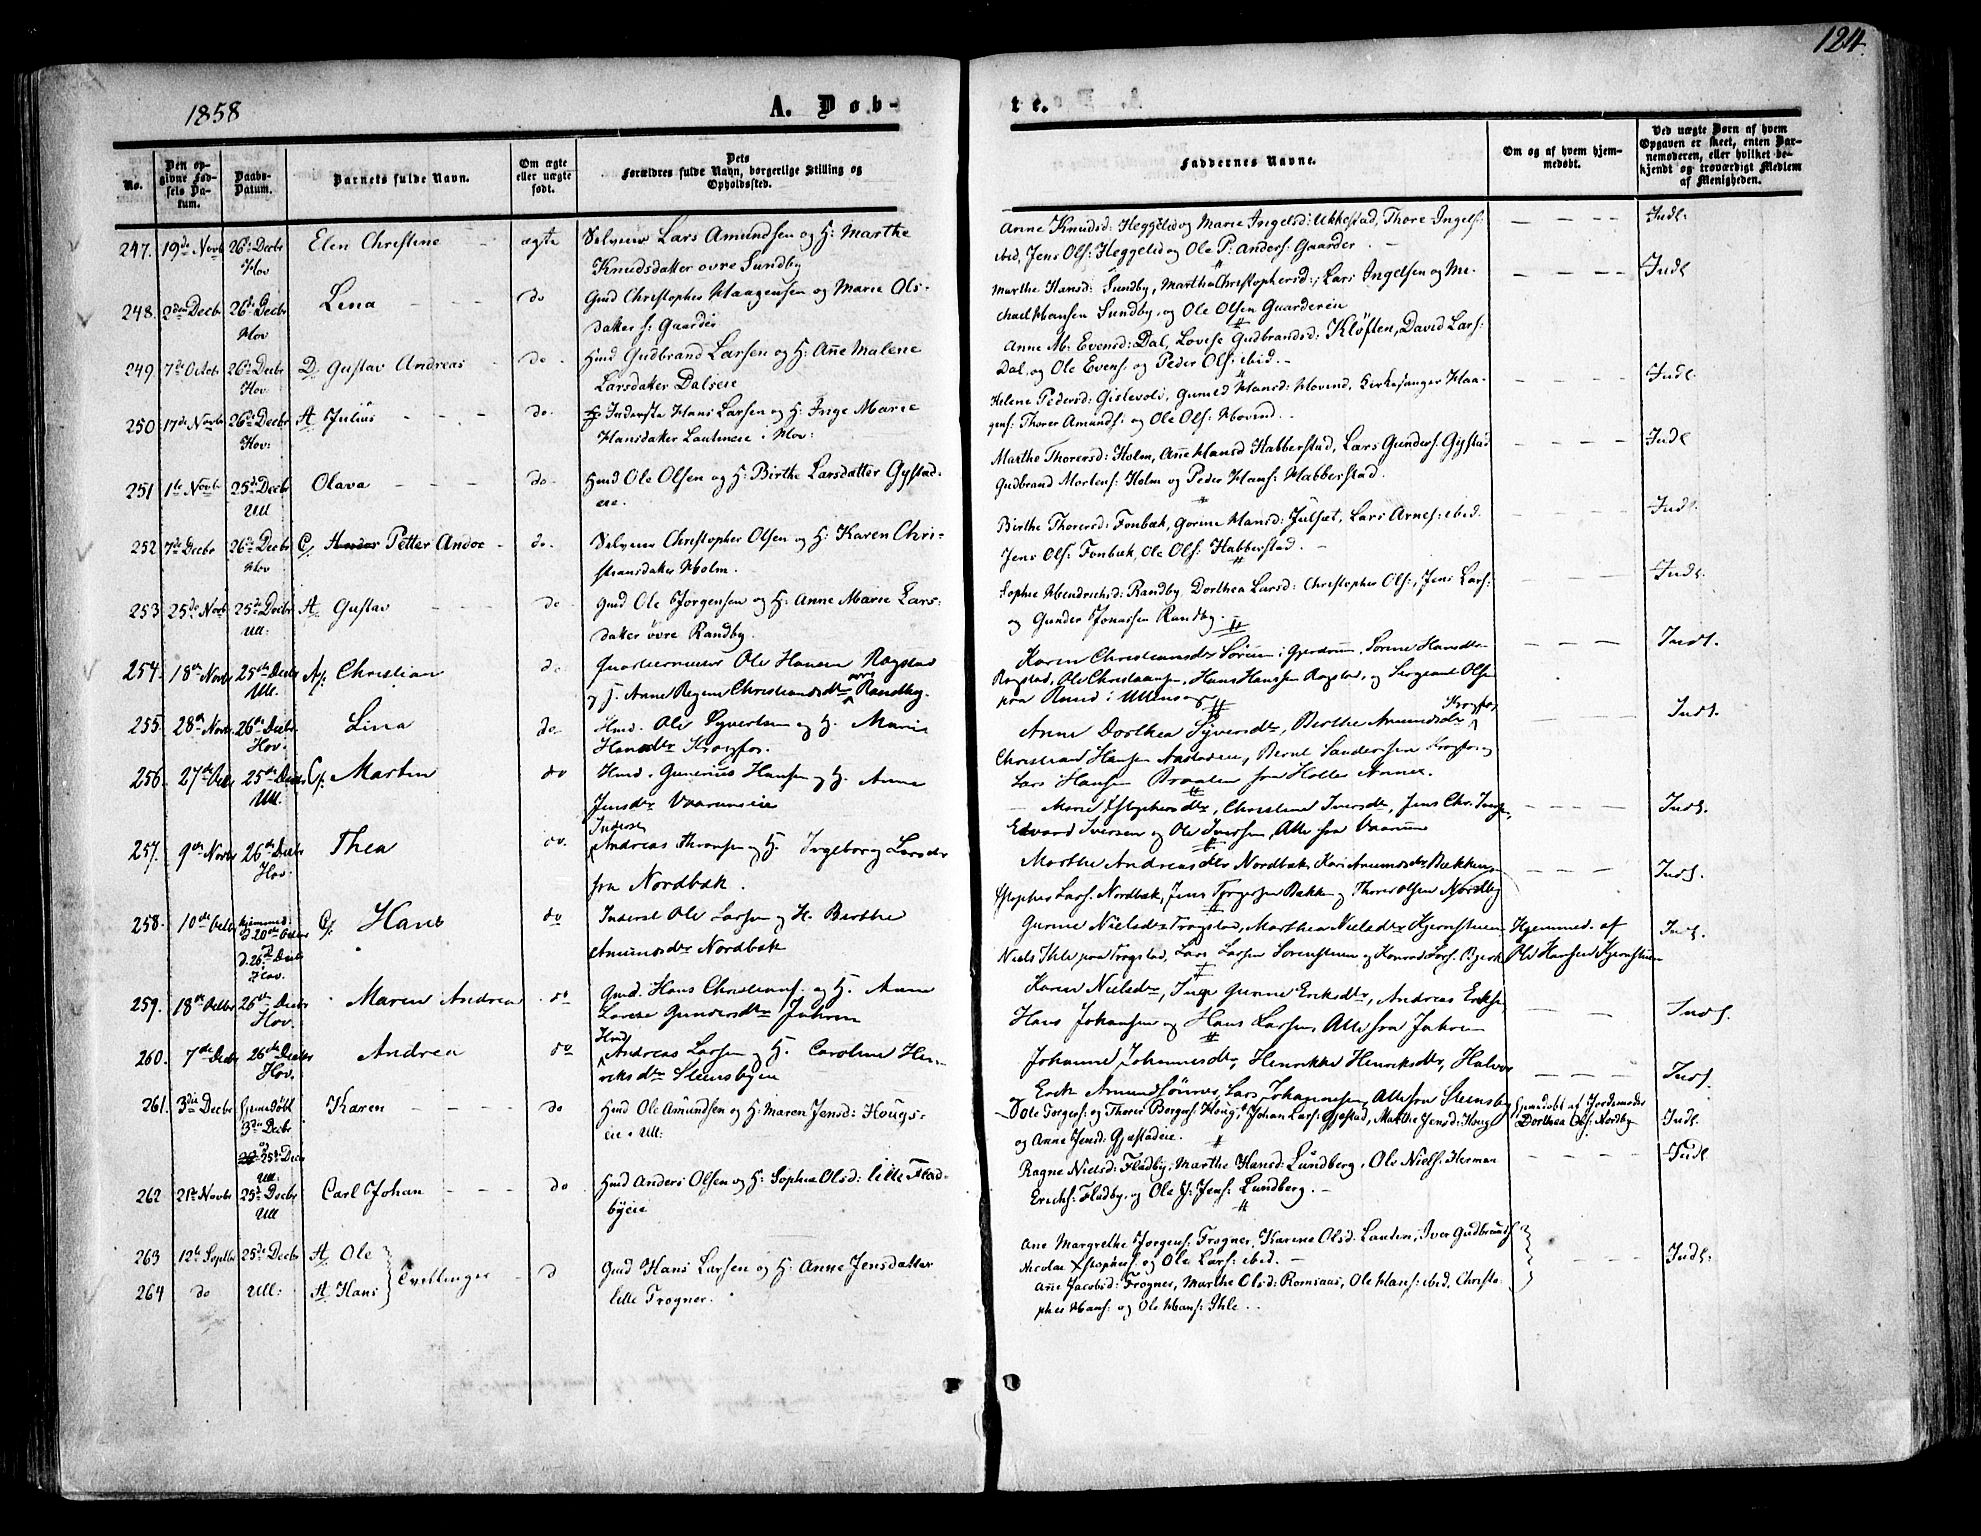 124.
1858
A. Døb-
te.
No.
Den opgivne Fødsels Datum.
Daabs-Datum.
Barnets fulde Navn.
Om ægte eller uægte født.
Dets Forældres fulde Navn, borgerlige Stilling og Opholdssted.
Faddernes Navne.
Om og af hvem hjemmedøbt.
Ved uægte Børn af hvem Opgaven er skeet, enten Barnemoderen, eller hvilket bekjendt og troværdigt Medlem af Menigheden.
247. 19de Novb 26de Decbr Elen Christine ægte Selveier Lars Amundsen og H: Marthe
Hov Knudsdatter øvre Sundby
Anne Knudsd: Heggelid og Marie Ingelsd: Ukkestad, Thore Ingels: Indl:
ibid, Jens Ols: Heggelid og Ole P: Anders: Gaarder
248. 2den Decbr 26de Decbr Lina do Gmd Christopher Haagensen og Marie Ols-
Hov datter s: Gaarder
Marthe Hansd: Sundby, Marthe Christophersd:, Lars Ingelsen og Mi- Indl
chael Hansen Sundby, og Ole Olsen Gaardereie
249 7de Octobr 26de Decbr D. Gustav Andreas do Hmd Gudbrand Larsen og H: Anne Malene
Hov. Larsdatter Daleie
Anne M: Evensd: Dal, Lovise Gudbrandsd: Kløften, David Lars:
Dal, og Ole Evens: og Peder Ols: ibid. Indl.
250 17de Novb 26de Decbr A Julius do. Inderste Hans Larsen og H: Inge Marie
Hov: Hansdatter i Hov:
Helene Pedersd: Gislevold, Gunild Hansd: Hovind, Kirkesanger Haa-
gens: Thorer Amunds: og Ole Ols: Hovind. Indl
251 1te Novbr 25de Decbr Olava do Hmd Ole Olsen og H: Birthe Larsdatter Gystad-
Ull eie.
Marthe Thorersd: Holm, Anne Hansd Habberstad, Lars Gunders: Gystad
Gudbrand Mortens: Holm og Peder Hans: Habberstad. Indl.
252 7de Decbr 26de Decbr C. Petter Andoe do. Selveier Christopher Olsen og H: Karen Chri-
Hov stiansdatter Holm.
Birthe Thorersd: Fonbæk, Gorine Hansd: Julset, Lars Arnes: ibid.
Jens Ols: Fonbæk, Ole Ols: Habberstad. Indl.
253 25de Novb 25de Decbr A Gustav do Gmd Ole Jørgensen og H: Anne Marie Lars:
Ull: datter øvre Randby.
Sophie Hendrichsd: Randby Dorthea Larsd: Christopher Ols:, Jens Lars:
og Gunder Jonassen Randby. Indl.
254. 18de Novbr 25de Decbr A. Christian do Ole Hansen Ragstad
Ull. og H. Anne Regine Christiansdtr øvre Randby.
Karen Christiansdtr Sørum i Gjerdrum, Sørine Hansdtr
Ragstad, Ole Christiansen, Hans Hanssen Ragstad, og Sergeant Olsen
fra Rund i Ullensager
255. 28de Novbr 26de Decbr Lina do Hmd. Ole Syvertsen og H. Marie
Hov. Hansdtr Krogfos.
Anne Dorthea Syversdtr, Berthe Amundsdtr Krogfos, Indl.
Christian Hansen Aastadeie, Bernt Sandersen Krogfos og
Lars Hansen Braaten fra Holter Annex.
256. 27de Octbr 25de Decbr C. Martin do Hmd. Gunerius Hansen og H. Anne
Ull. Jensdtr Vaarumseie
Marie Christophersdtr, Christine Iversdtr, Jens Chr. Indl.
Edvard Iversen og Ole Iversen, Alle fra Vaarum
257. 9de Novbr 26de Decbr Thea do. Inderst Andreas Thronsen og H. Ingeborg Larsdtr
Hov. fra Nordbæk.
Marthe Andreasdtr Nordbæk, Kari Amundsdtr Bækken, Indl.
Christopher Lars: Nordbæk, Jens Torgersen Bække og Thorer Olsen Nordby
258. 10de Octbr hjemmed. d. 20de Octbr C. Hans do Inderst Ole Larsen og H. Berthe
d. 26de Decbr Hov. Amundsdtr Nordbæk
Gurine Nielsdtr Trogstad, Marthea Nielsdtr Kjernstuen Hjemmed. af Indl.
Niels Ihle fra Trogstad, Lars Larsen Sørenstuen og Konrad Lars. Bjerke Ole Hansen Kjernstuen
259. 18de Octbr 26de Decbr Maren Andrea do Gmd. Hans Christians. og H. Anne
Hov. Lovise Gundersdtr Jahren
Karen Nielsdtr, Inge Gurine Eriksdtr, Andreas Eriksen Indl.
Hans Johansen og Hans Larsen, Alle fra Jahren
260. 7de Decbr 26de Decbr Andrea do Hmd Andreas Larsen og H. Caroline Hen-
Hov. riksdtr Steensbyeie
Johanne Johannesdtr, Henrikke Henriksdtr, Halvor
Erik Amundsønner, Lars Johannesen, Alle fra Steensby Indl.
261. 3die Decbr hjemdøbt 3die Decbr Karen do Hmd Ole Amundsen og H: Maren Jensd: Hougs-
25de Decbr Ull. eie i Ull:
Ole Torgers: og Thorer Berger: Houg, Johan Lars: Gjestad, Marthe Jensd: Houg Hjemdøbt af Jordemoder Indl.
og Anne Jensd: Gjestadeie. Dorthea Ols: Nordby
262 21de Novbr 25de Decbr Carl Johan do Hmd Anders Olsen og H: Sophie Olsd: lille Flad-
Ull byeie
Ragne Nielsd: Fladby, Marthe Hansd: Lundberg, Ole Niels: Herman Indl
Erichs: Fladby, og Ole J: Jens: Lundberg.
263 12te Septbr 25de Decbr A Ole do Gmd Hans Larsen og H: Anne Jensdatter
264 do Ull: A Hans Tvillinger lille Frogner.
Ane Margrethe Jørgens: Frogner, Karine Olsd: Lauten, Iver Gudbrands: Indl:
Nicolai Christophers: og Ole Lars: ibid.
Anne Jacobsd: Frogner, Marthe Olsd: Romsaas, Ole Hans: ibid. Christo-
pher Hans: og Ole Hans: Ihle.